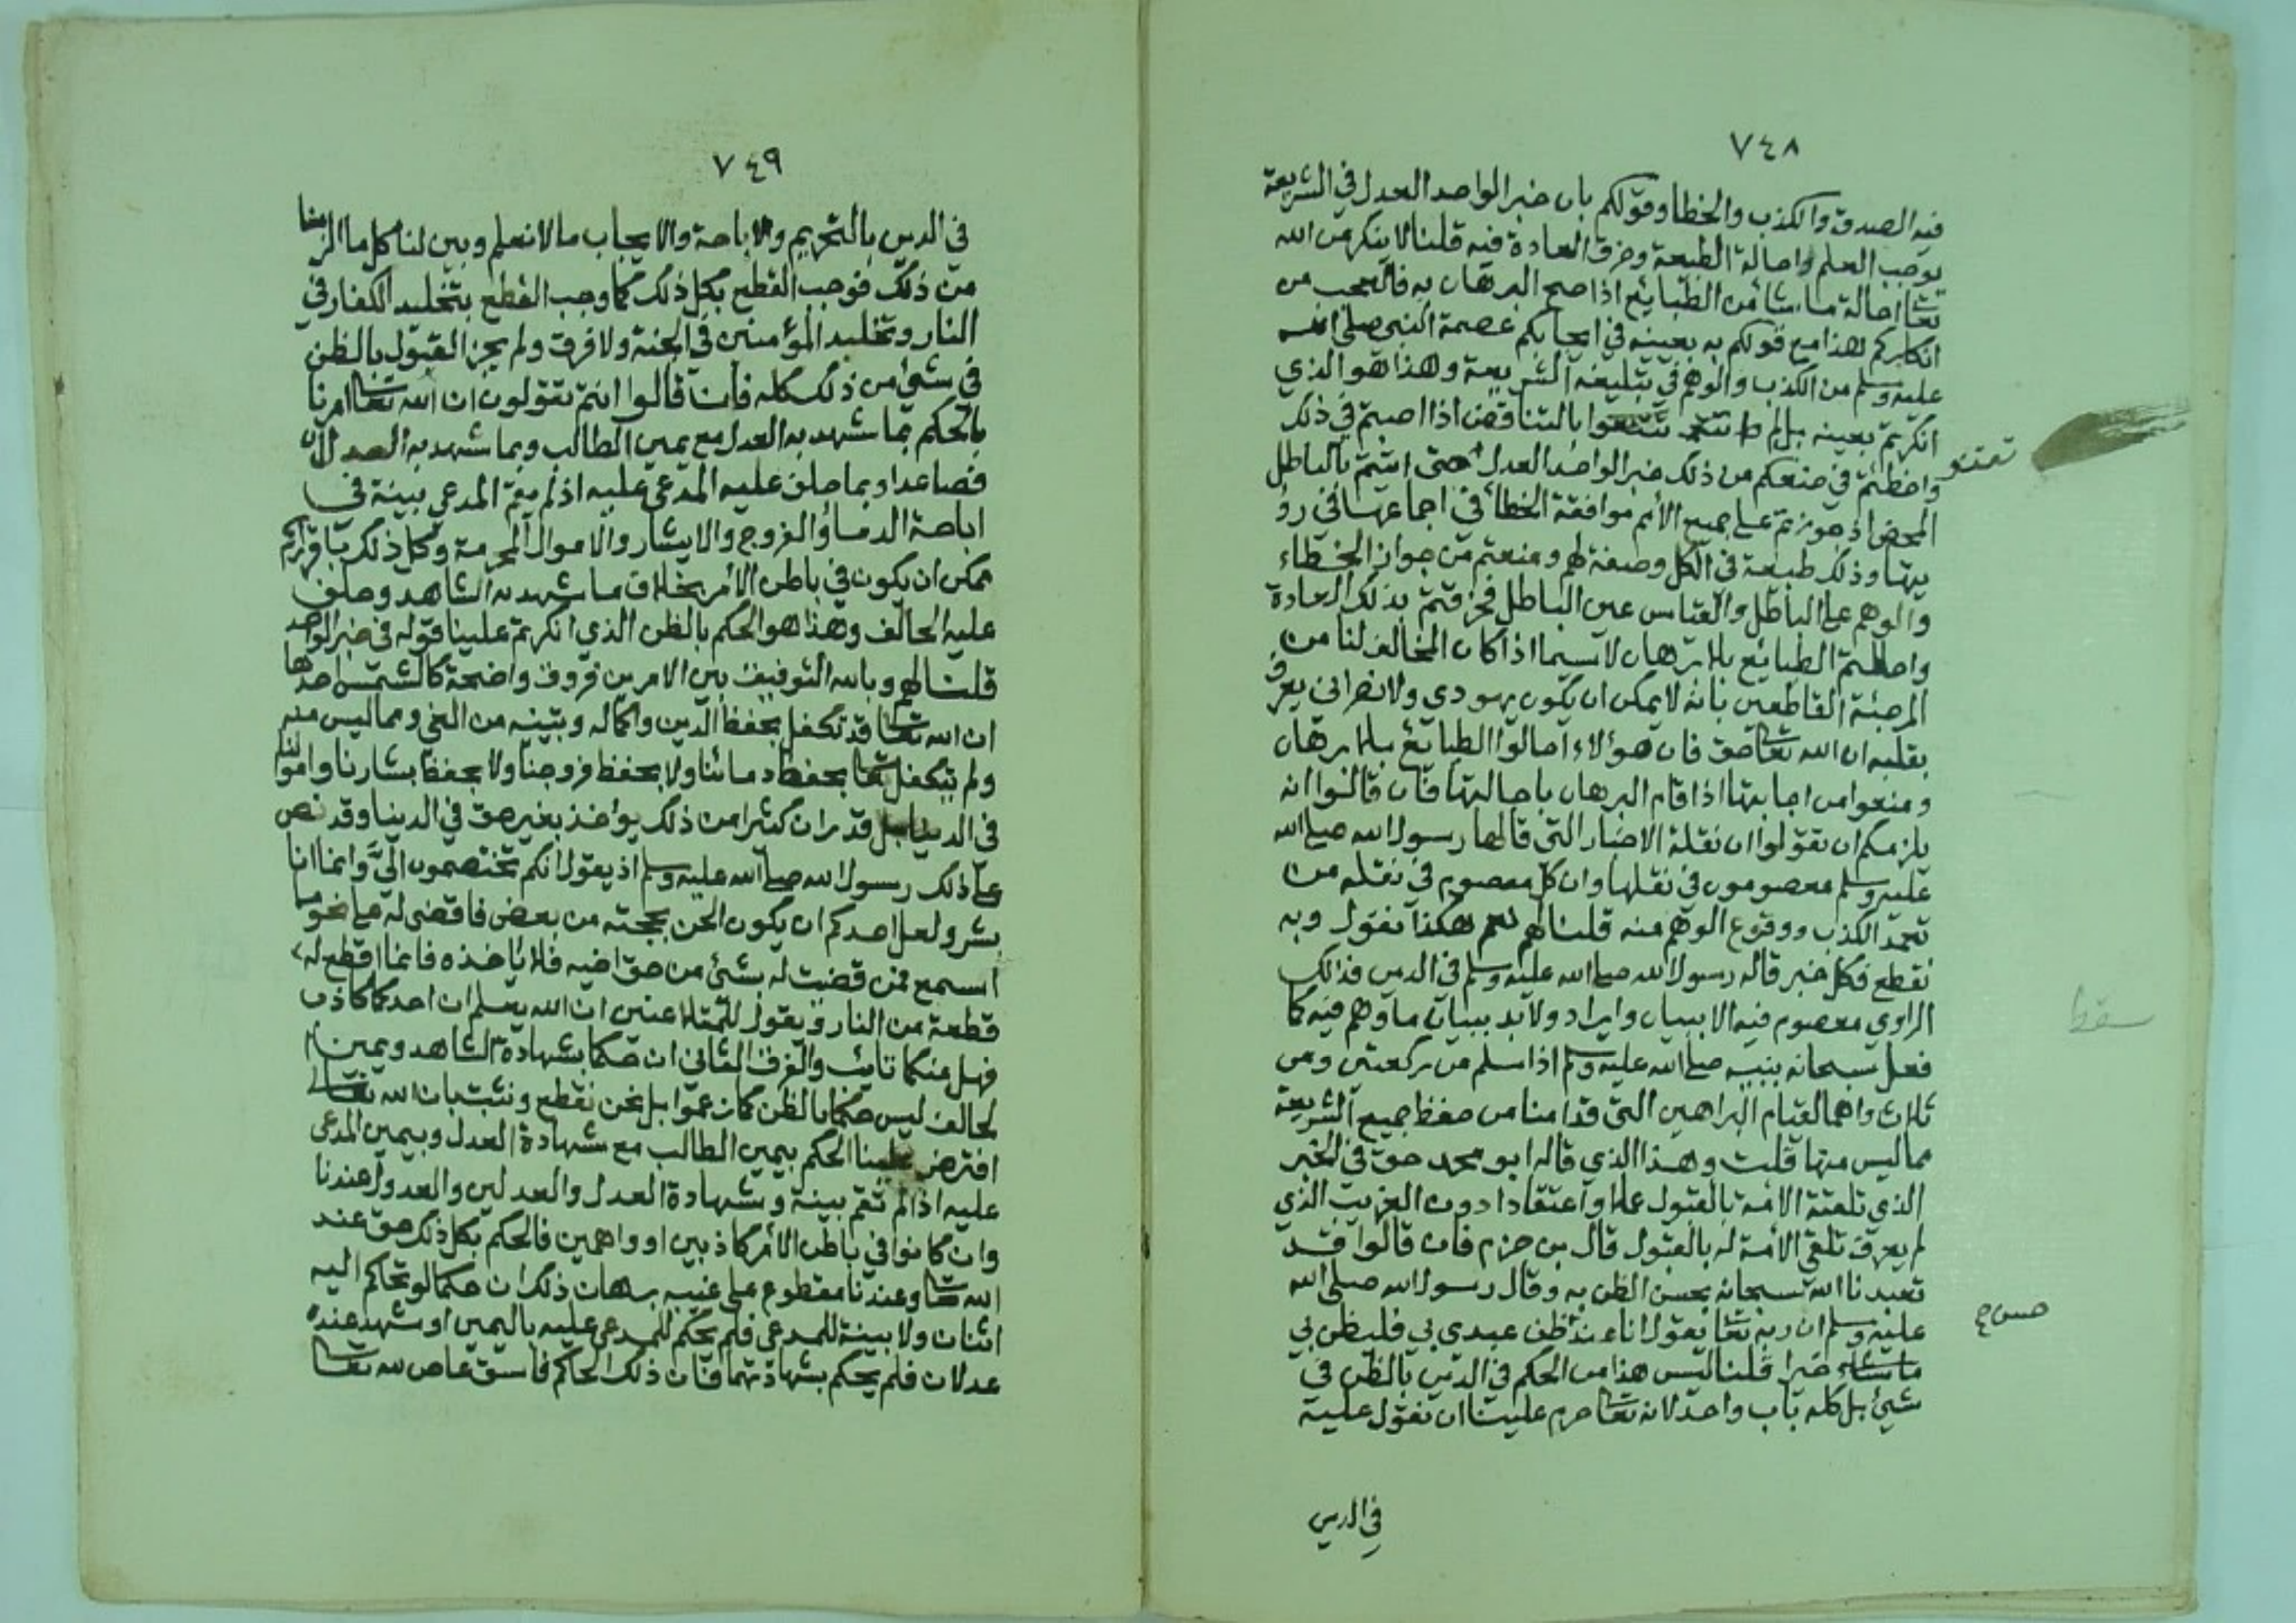 ٧٤٨
فيه الصدق والكذب والخطا وقولكم بان خبر الواحد العدل في الشريعة
يوجب العلم واحالة الطبيعة وخرق العادة فيه قلنا لا ينكر من الله
تعا احالة ما شا من الطبايع اذا صح البرهان به فالعجب من
انكاركم هذا مع قولكم به بعينه في ايجابكم عصمة النبي صلى الله
عليه وسلم من الكذب والوهم في تبليغه الشريعة وهذا هو الذي
انكرتم بعينه بل لم تقنعوا بالتناقض اذا اصبتم في ذلك
تقنعو
واخطئتم في منعكم من ذلك خبر الواحد العدل حتى اتيتم بالباطل
المحض اذ جوزتم على جميع الأمم موافقة الخطأ في اجماعها في رؤ
يتها وذلك طبيعة في الكل وصفة لهم ومنعتم من جواز الخطاء
والوهم على الباطل والقياس عين الباطل فخرقتم بذلك العادة
واحلتم الطبايع بلا برهان لا سيما اذا كان المخالف لنا من
المرجئة القاطعين بانه لا يمكن ان يكون يهودي ولا نصراني يعرف
بقلبه ان الله تعا حق فان هؤلاء احالوا الطبايع بلا برهان
ومنعوا من اجابتها اذا قام البرهان باحالتها فان قالوا انه
يلزمكم ان تقولوا ان نقلة الاخبار التي قالها رسول الله صلى الله
عليه وسلم معصومون في نقلها وان كل معصوم في نقله من
تعمد الكذب ووقوع الوهم منه قلنا لهم نعم هكذا نقول وبه
نقطع فكل خبر قاله رسول الله صلى الله عليه وسلم في الدين فذالك
الراوي معصوم فيه الا ببيان وايراد ولا بد ببيان ما وهم فيه كما
فعل سبحانه بنبيه صلى الله عليه وسلم اذا سلم من ركعتين ومن
ثلاث واهما لقيام البراهين التي قدامنا من حفظ جميع الشريعة
مما ليس منها قلت وهذا الذي قاله ابو محمد حق في الخبر
الذي تلقته الامة بالقبول عملا واعتقادا دون الغريب الذي
لم يعرف تلقي الأمة له بالقبول قال بن حزم فان قالوا قد
تعبدنا الله سبحانه بحسن الظن به وقال رسول الله صلى الله
عليه وسلم ان ربه تعا يقول انا عند ظن عبدي بي فليظن بي
ما شاء خيرا قلنا ليس هذا من الحكم في الدين بالظن في
شيئ بل كله باب واحد لانه تعا حرم علينا ان نقول عليه
في الدين
سقط
٧٤٩
في الدين بالتحريم والاباحة والايجاب ما لا نعلم وبين لنا كل ما الزمنا
من ذلك فوجب القطع بكل ذلك كما وجب القطع بتخليد الكفار في
النار وتخليد المؤمنين في الجنة ولا فرق ولم يجز القبول بالظن
في شيئ من ذلك كله فان قالوا انتم تقولون ان الله تعا امرنا
بالحكم بما شهد به العدل مع يمين الطالب وبما شهد به العدلان
فصاعدا وبما حلف عليه المدعى عليه اذ لم يقم المدعي بينة في
اباحة الدماء والفروج والابشار والاموال المحرمة وكل ذلك باقراركم
ممكن ان يكون في باطن الأمر بخلاف ما شهد به الشاهد وحلف
عليه الحالف وهذا هو الحكم بالظن الذي انكرتم علينا قوله في خبر الواحد
قلنا لهم وبالله التوفيق بين الامرين فروق واضحة كالشمس احدها
ان الله تعا قد تكفل بحفظ الدين واكماله وبتبينه من الغي ومما ليس منه
ولم يتكفل تعا بحفظ دمائنا ولا بحفظ فروجنا ولا بحفظ بشارنا واموالنا
في الدنيا بل قدر ان كثيرا من ذلك يؤخذ بغير حق في الدنيا وقد نص
على ذلك رسول الله صلى الله عليه وسلم اذ يقول انكم تختصمون اليَّ وانما انا
بشر ولعل احدكم ان يكون الحن بحجته من بعض فاقضي له على نحو ما
اسمع فمن قضيت له بشئ من حق اخيه فلا ياخذه فانما اقطع له
قطعة من النار ويقول للمتلاعنين ان الله يعلم ان احدكما كاذب
فهل منكما تائب والفرق الثاني ان حكما بشهادة الشاهد ويمين ا
لحالف ليس حكما بالظن كما زعموا بل نحن نقطع ونثبت بان الله تعا
افترض علينا الحكم بيمين الطالب مع شهادة العدل وبيمين المدعى
عليه اذا لم تقم بينة وشهادة العدل والعدلين والعدول عندنا
وان كانوا في باطن الأمر كاذبين او واهمين فالحكم بكل ذلك حق عند
الله تعا وعندنا مقطوع على غيبه برهان ذلك ان حكما لو تحاكم اليه
اثنان ولا بينة للمدعي فلم يحكم للمدعى عليه باليمين او شهد عنده
عدلان فلم يحكم بشهادتهما فان ذلك الحاكم فاسق عاص لله تعا